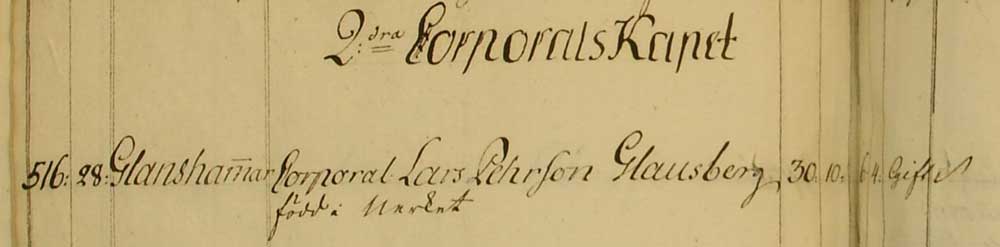 2:dra CorporalsKapet
516: 28: Glansham̄ar Corporal Lars Pehrson Glausberg, 30. 10: 64. Gift
född i Nerket